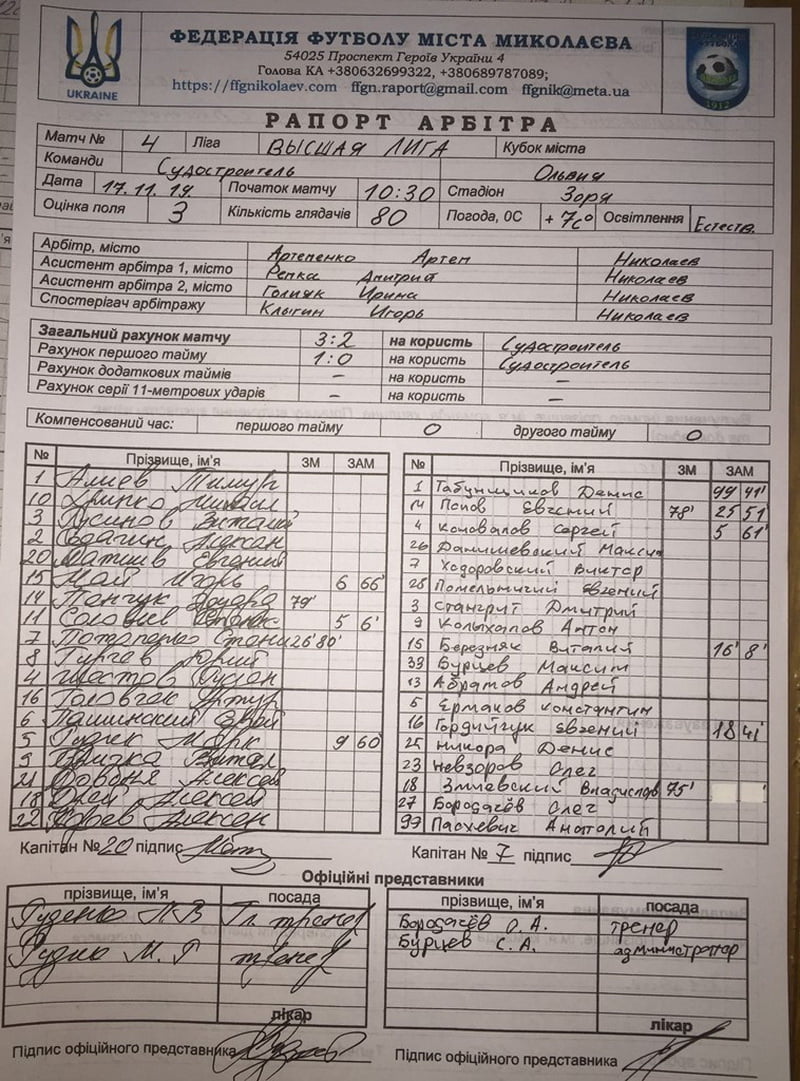 ФЕДЕРАЦІЯ ФУТБОЛУ МІСТА МИКОЛАЄВА
54025 Проспект Героїв України 4
Голова КА +380632699322, +380689787089;
https://ffgnikolaev.com ffgn.raport@gmail.com ffgnik@meta.ua
UKRAINE
1912
РАПОРТ АРБІТРА
Матч № 4 Ліга ВЫСШАЯ ЛИГА Кубок міста
Команди Судостроитель Ольвия
Дата 17.11.19 Початок матчу 10:30 Стадіон Заря
Оцінка поля 3 Кількість глядачів 80 Погода, 0С +7с° Освітлення Естеств.
Арбітр, місто Артеменко Артем Николаев
Асистент арбітра 1, місто Репка Дмитрий Николаев
Асистент арбітра 2, місто Голияк Ирина Николаев
Спостерігач арбітражу Клыгин Игорь Николаев
Загальний рахунок матчу 3:2 на користь Судостроитель
Рахунок першого тайму 1:0 на користь Судостроитель
Рахунок додаткових таймів – на користь –
Рахунок серії 11-метрових ударів – на користь –
Компенсований час: першого тайму 0 другого тайму 0
№ Прізвище, ім'я ЗМ ЗАМ
1 Алиев Тимур
10
3
2
20 Матиив Евгений
15 Май Игорь 6 66'
14 Панчук 79'
11 5 6'
7 26' 80'
8 Гургев Юрий
4 Шестов Руслан
16 Головчак Артур
6 Пашинский
5 Марк 9 60'
9
21 Алексей
18 Алексей
22
Капітан № 20 підпис
№ Прізвище, ім'я ЗМ ЗАМ
1 Табунщиков Денис 99 41'
14 Попов Евгений 78' 25 51
4 Коновалов Сергей 5 61'
26 Данишевский Максим
7 Ходоровский Виктор
28 Помельничий Евгений
3 Стангрит Дмитрий
9 Колыхалов Антон
15 Березняк Виталий 16' 8'
39 Бурцев Максим
13 Абрамов Андрей
5 Ермаков Константин
16 Гордийчук Евгений 18 41'
25 Никора Денис
23 Невзоров Олег
18 Змиевский Владислав 75'
27 Бородачёв Олег
99 Пасхевич Анатолий
Капітан № 7 підпис
Офіційні представники
прізвище, ім'я посада
Руденко Гл. тренер
М. Г тренер
лікар
Підпис офіційного представника
прізвище, ім'я посада
Бородачёв О. А. тренер
Бурцев С. А. администратор
лікар
Підпис офіційного представника